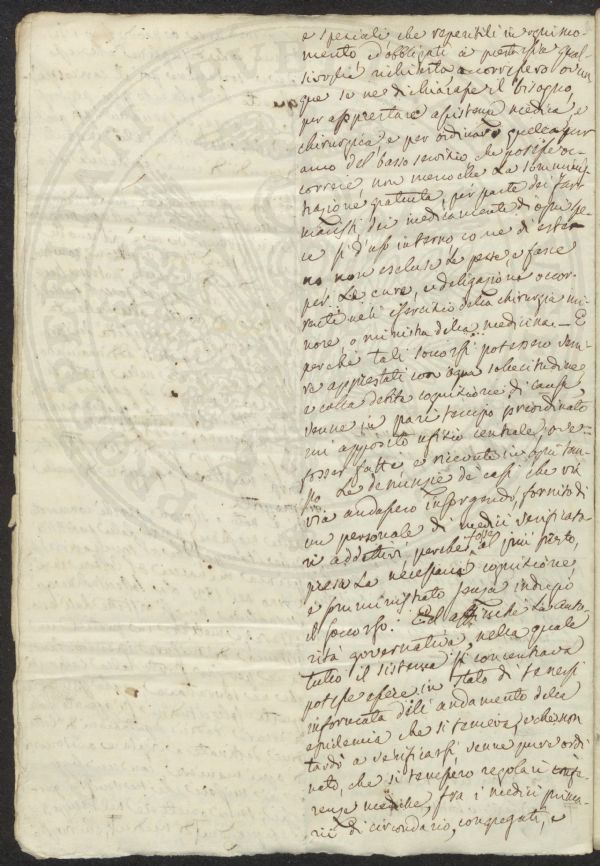 e speziali che reperibili in ogni mo-
mento ed obbligati a prestarsi a qual-
sivoglia richiesta accorressero ovun
que se ne dichiarasse il bisogno,
per apprestare assistenza medica e
chirurgica e per ordinare quella pur
anco del basso servizio che potesse oc-
correre, non meno che la sommini
strazione gratuita per parte dei Far
macisti dei medicamenti di ogni spe-
cie sì d'uso interno come di ester
no non escluse le pezze e fasce
per le cure, e deligazioni occor-
renti nell'esercizio della chirurgia mi
nore o ministra della medicina. — E
perchè tali soccorsi potessero sem-
pre apprestati con ogni sollecitudine
e colla debita cognizione di causa
venne in pari tempo preordinato
un apposito ufizio centrale, ove
fosser fatte e ricevute in ogni tem-
po le denunzie de' casi che via
via andassero insorgendo, fornito di
un personale di medici verificato-
ri addettivi, perchè fosse al più presto,
presa la necessaria cognizione
e somministrato senza indugio
il soccorso. Ed affinchè l'auto
rità governativa, nella quale
tutto il sistema si concentrava
potesse essere in stato di tenersi
informata dell'andamento della
epidemia che si temeva, e che non
tardò a verificarsi, venne pure ordi
nato, che si tenessero regolari confe-
renze mediche, fra i medici prima-
rii di circondario, congregati, e